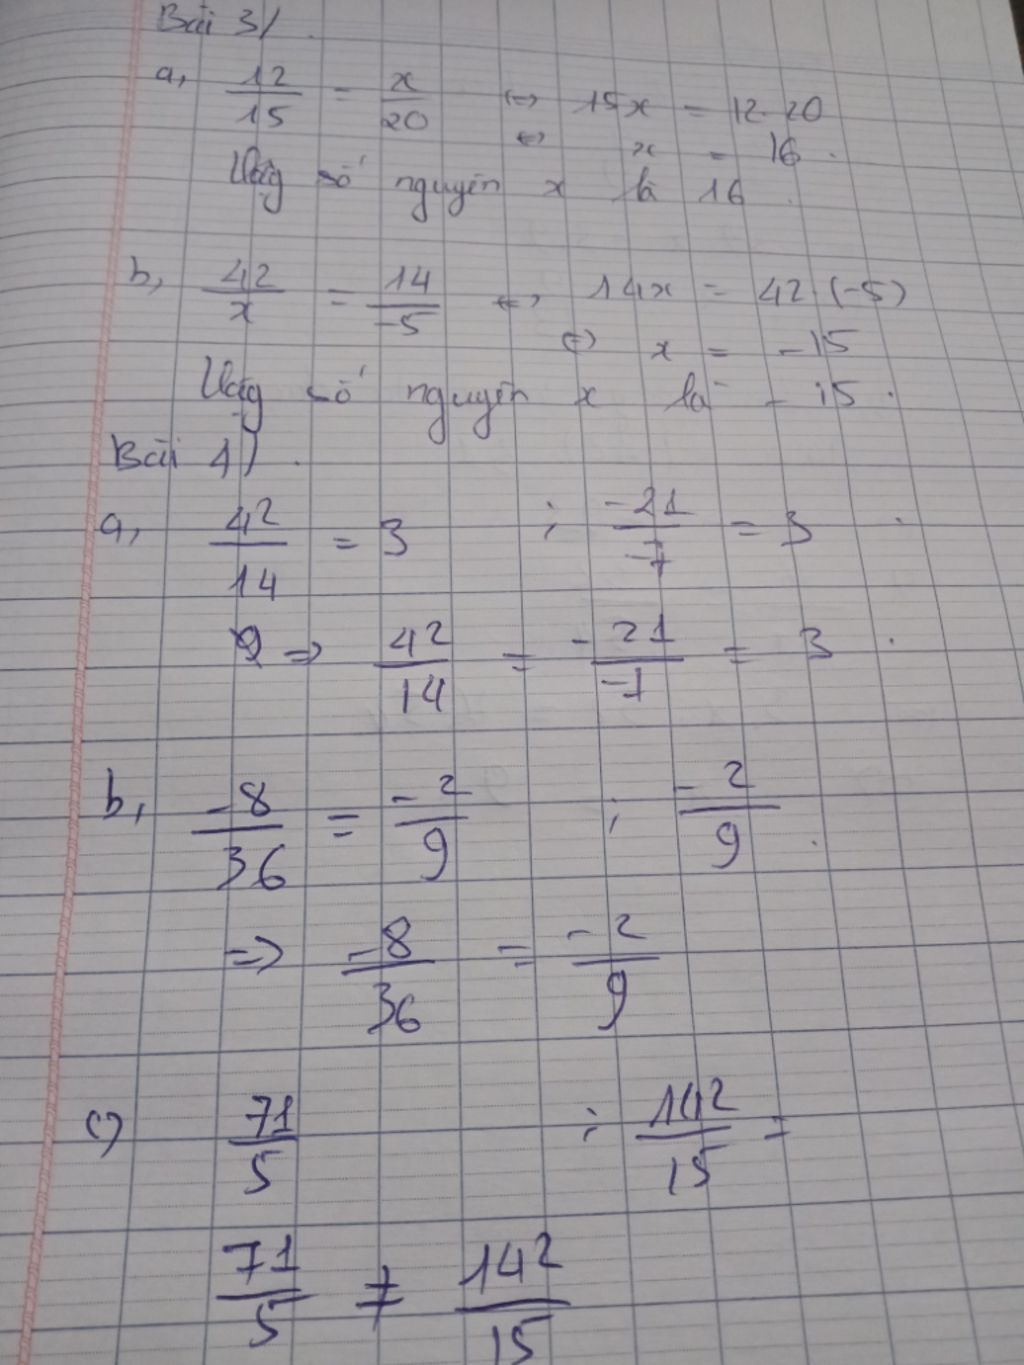 Bài 3/.
a, 12/15 = x/20 <=> 15x = 12.20
<=> x = 16.
Vậy số nguyên x là 16.
b, 42/x = 14/-5 <=> 14x = 42.(-5)
<=> x = -15
Vậy số nguyên x là -15.
Bài 4/.
a, 42/14 = 3 ; -21/-7 = 3.
=> 42/14 = -21/-7 = 3.
b, -8/36 = -2/9 ; -2/9.
=> -8/36 = -2/9
c) 71/5 ; 142/15 =
71/5 ≠ 142/15